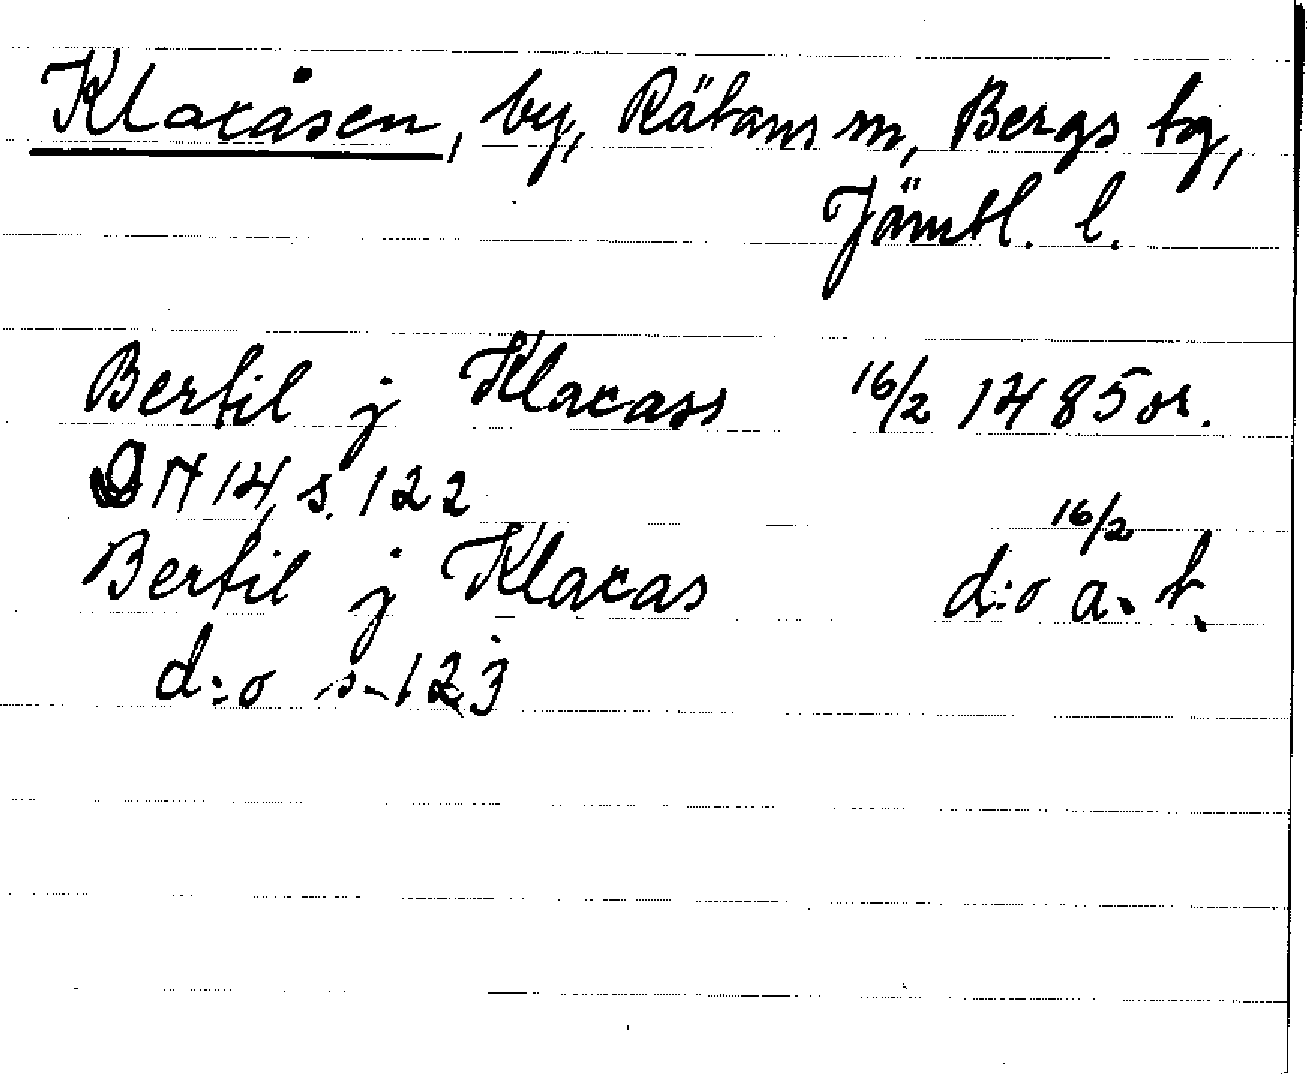 Klaxåsen, by, Rätans sn, Bergs tg,
Jämtl. l.
Bertil j Klaxass 16/2 1485 or.
DN 14, s. 122
Bertil j Klaxas d:o 16/2 a. t.
d:o s. 123